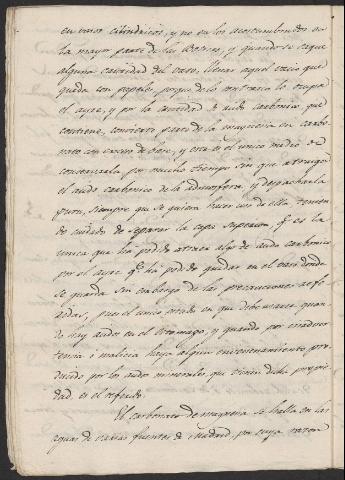 en vasos cilindricos, y no en los acostumbrados en
la mayor parte de las Boticas, y quando se saque
alguna cantidad del vaso, llenar aquel vacio que
queda con papeles, porque de lo contrario lo ocupa
el ayre, y por la cantidad de acido carbonico que
contiene, convierte parte de la magnesia en carbo-
nato con exceso de base, y este es el unico medio de
conservarla por mucho tiempo sin que atraiga
el acido carbonico de la admosfera, y despacharla
pura, siempre que se quiera hacer uso de ella tenien-
do cuidado de separar la capa suprema, qe es la
unica que ha podido atraer algo de acido carbonico
por el ayre qe ha podido quedar en el vaso donde
se guarda sin embargo de las precauciones refe-
ridas, pues el unico estado en que debe usarse quan-
do hay acidos en el estomago, y quando por inadver-
tencia ó malicia haya algun envenenamiento pro-
ducido por los acidos minerales, que tienen dicha propie-
dad, es el referido.
El carbonato de magnesia se halla en las
aguas de varias fuentes de Madrid, por cuya razon